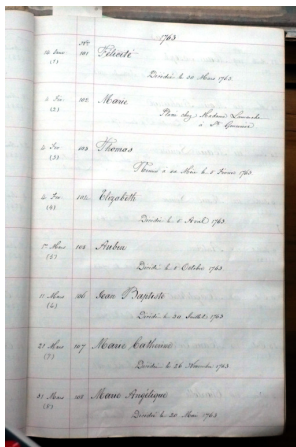 1763
No
101 Félicité
(1)
Décédée le 30 Mars 1763
102 Marie
(2)
Placée chez Madame
à St Germain
2 Fev 103 Thomas
(3)
le 2 Fevrier 1763
Fev Elizabeth
(4)
Décédée le Avril 1763
Mars 105 Aubin
(5)
Décédé le Octobre 1763
Mars 106 Jean Baptiste
(6)
Décédé le Juillet 1763
21 Mars 107 Marie Catherine
(7)
Décédée le 26 Novembre 1763
Mars 108 Marie Angélique
(8)
Décédée le 20 Mars 1763